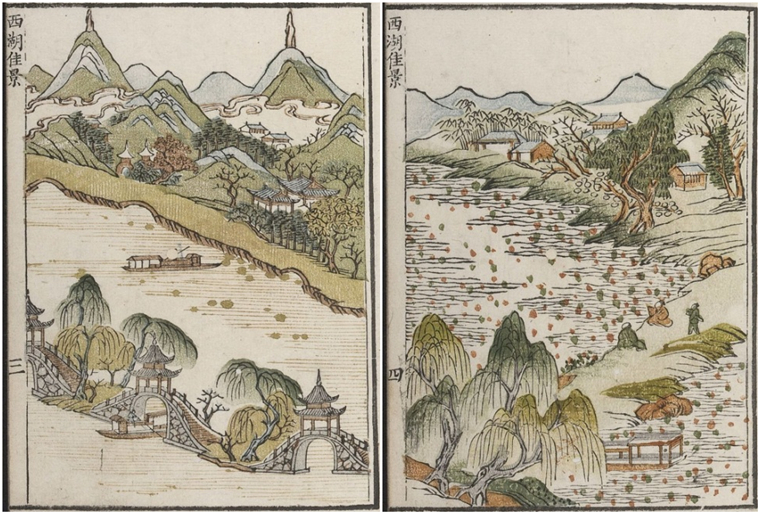 西湖佳景
二
西湖佳景
四